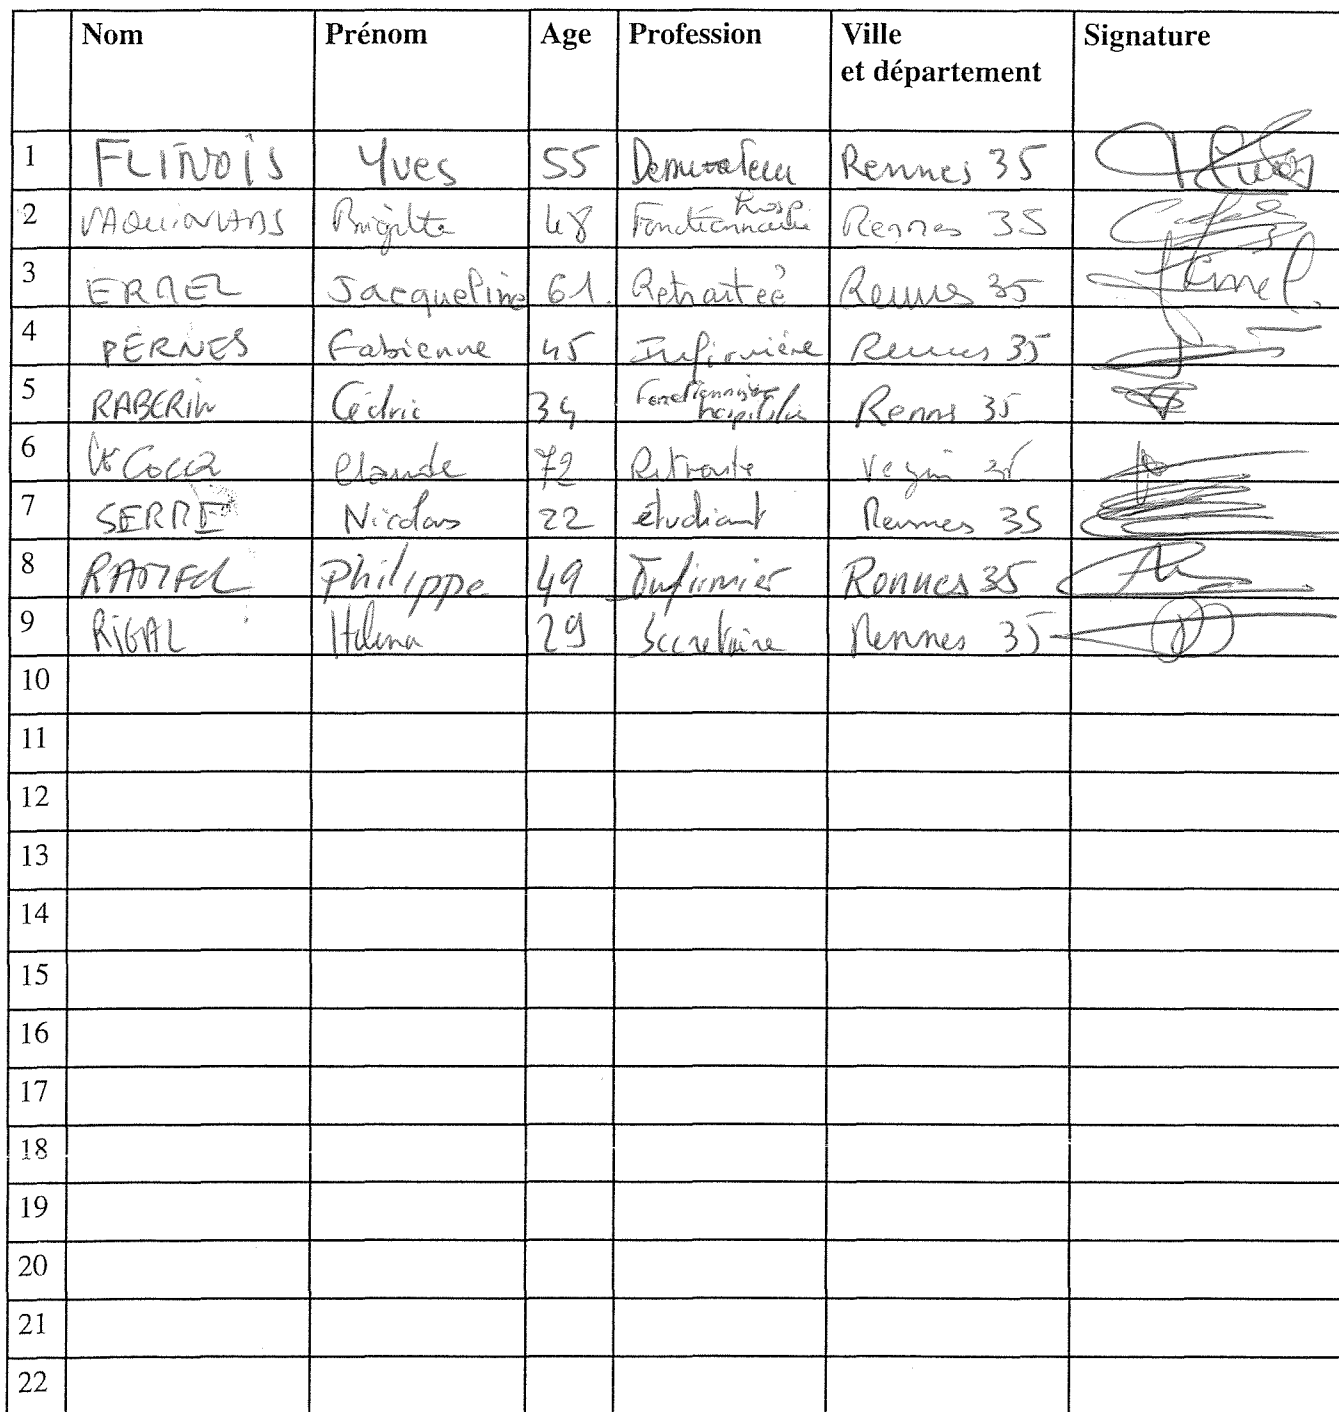 Nom Prénom Age Profession Ville et département Signature
1 FLINOIS Yves 55 Rennes 35
2 Brigitte 48 Fonctionnaire hosp Rennes 35
3 ERMEL Jacqueline 61 Retraitée Rennes 35
4 PERNES Fabienne 45 Infirmière Rennes 35
5 RABERIN Cédric 34 Fonctionnaire hospitalier Rennes 35
6 Le Cocq Claude 72 Retraité Vezin 35
7 SERRE Nicolas 22 étudiant Rennes 35
8 Philippe 49 Infirmier Rennes 35
9 RIGAL 29 Secretaire Rennes 35
10
11
12
13
14
15
16
17
18
19
20
21
22